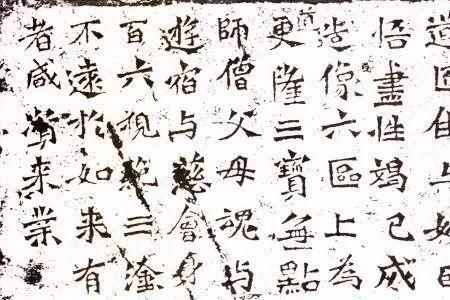 道
悟盡性竭己成
造像六區上為
更道隆三寶無點
師僧父母魂与
遊宿与慈會身
百六規範三塗
不遠於如来有
者咸来業